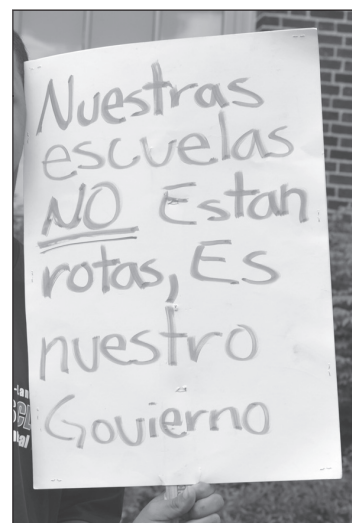 Nuestras
escuelas
NO Estan
rotas, Es
nuestro
Govierno